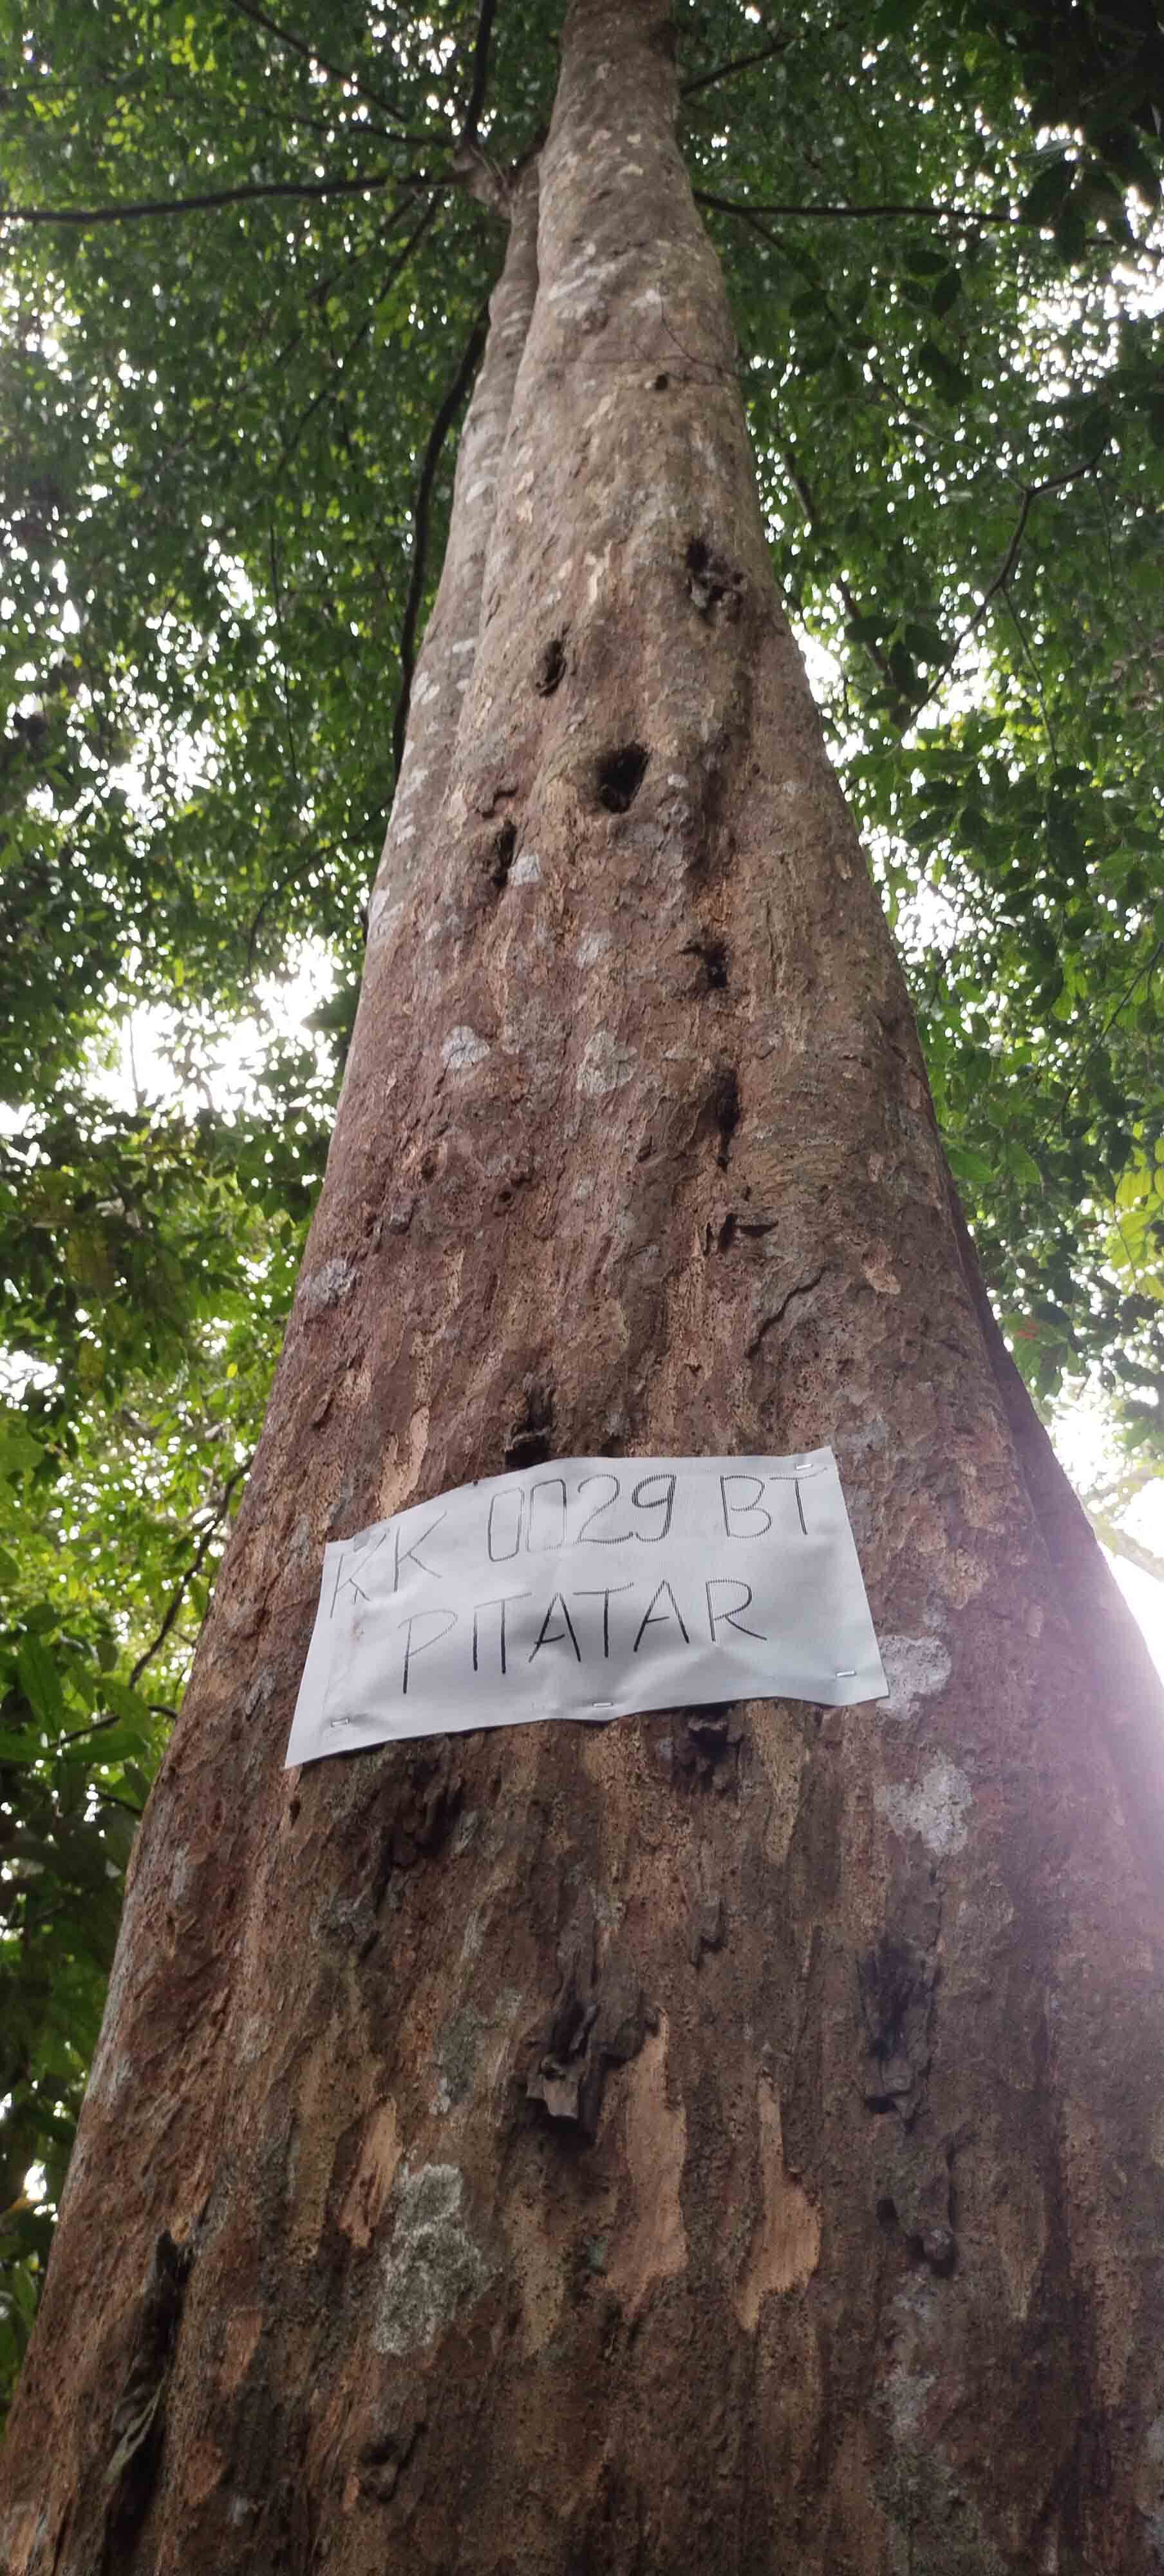 KK 0029 BT
PITATAR